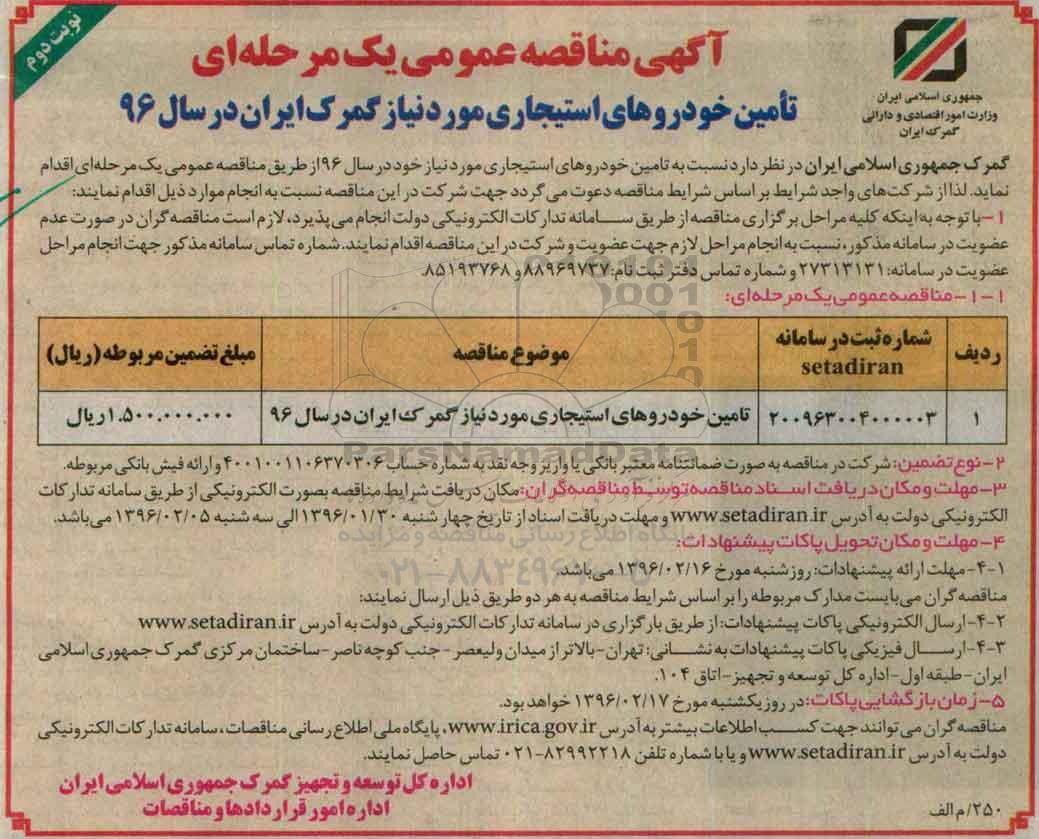 نوبت دوم
جمهوری اسلامی ایران
وزارت امور اقتصادی و دارائی
گمرک ایران
آگهی مناقصه عمومی یک مرحله‌ای
تأمین خودروهای استیجاری مورد نیاز گمرک ایران در سال ۹۶
گمرک جمهوری اسلامی ایران در نظر دارد نسبت به تامین خودروهای استیجاری مورد نیاز خود در سال ۹۶ از طریق مناقصه عمومی یک مرحله‌ای اقدام
نماید. لذا از شرکت‌های واجد شرایط بر اساس شرایط مناقصه دعوت می گردد جهت شرکت در این مناقصه نسبت به انجام موارد ذیل اقدام نمایند:
۱-با توجه به اینکه کلیه مراحل برگزاری مناقصه از طریق سامانه تدارکات الکترونیکی دولت انجام می پذیرد، لازم است مناقصه گران در صورت عدم
عضویت در سامانه مذکور، نسبت به انجام مراحل لازم جهت عضویت و شرکت در این مناقصه اقدام نمایند. شماره تماس سامانه مذکور جهت انجام مراحل
عضویت در سامانه: ۲۷۳۱۳۱۳۱ و شماره تماس دفتر ثبت نام: ۸۸۹۶۹۷۳۷ و ۸۵۱۹۳۷۶۸.
۱-۱-مناقصه عمومی یک مرحله‌ای:
ردیف
شماره ثبت در سامانه
setadiran
موضوع مناقصه
مبلغ تضمین مربوطه (ریال)
۱
۲۰۰۹۶۳۰۰۴۰۰۰۰۰۳
تامین خودروهای استیجاری مورد نیاز گمرک ایران در سال ۹۶
۱.۵۰۰.۰۰۰.۰۰۰ ریال
ParsNamadData
۲-نوع تضمین: شرکت در مناقصه به صورت ضمانتنامه معتبر بانکی یا واریز وجه نقد به شماره حساب ۴۰۰۱۰۰۱۱۰۶۳۷۰۳۰۶ و ارائه فیش بانکی مربوطه.
۳-مهلت و مکان دریافت اسناد مناقصه توسط مناقصه گران: مکان دریافت شرایط مناقصه بصورت الکترونیکی از طریق سامانه تدارکات
الکترونیکی دولت به آدرس www.setadiran.ir و مهلت دریافت اسناد از تاریخ چهارشنبه ۱۳۹۶/۰۱/۳۰ الی سه شنبه ۱۳۹۶/۰۲/۰۵ می باشد.
پایگاه اطلاع رسانی مناقصه و مزایده
۴-مهلت و مکان تحویل پاکات پیشنهادات:
۰۲۱-۸۸۳۴۹۶۷۰-۵
۴-۱-مهلت ارائه پیشنهادات: روز شنبه مورخ ۱۳۹۶/۰۲/۱۶ می باشد.
مناقصه گران می بایست مدارک مربوطه را بر اساس شرایط مناقصه به هر دو طریق ذیل ارسال نمایند:
۴-۲-ارسال الکترونیکی پاکات پیشنهادات: از طریق بارگزاری در سامانه تدارکات الکترونیکی دولت به آدرس www.setadiran.ir
۴-۳-ارسال فیزیکی پاکات پیشنهادات به نشانی: تهران-بالاتر از میدان ولیعصر-جنب کوچه ناصر-ساختمان مرکزی گمرک جمهوری اسلامی
ایران-طبقه اول-اداره کل توسعه و تجهیز-اتاق ۱۰۴.
۵-زمان بازگشایی پاکات: در روز یکشنبه مورخ ۱۳۹۶/۰۲/۱۷ خواهد بود.
مناقصه گران می توانند جهت کسب اطلاعات بیشتر به آدرس www.irica.gov.ir، پایگاه ملی اطلاع رسانی مناقصات، سامانه تدارکات الکترونیکی
دولت به آدرس www.setadiran.ir و یا با شماره تلفن ۸۲۹۹۲۲۱۸-۰۲۱ تماس حاصل نمایند.
اداره کل توسعه و تجهیز گمرک جمهوری اسلامی ایران
اداره امور قراردادها و مناقصات
۲۵۰/م الف